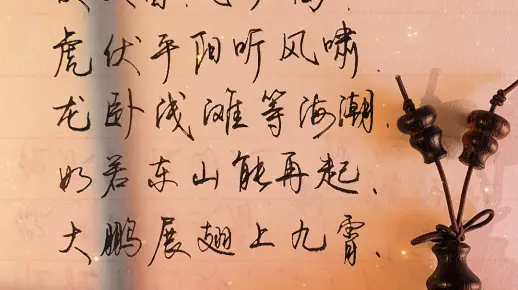 虎伏平阳听风啸.
龙卧浅滩等海潮.
如若东山能再起.
大鹏展翅上九霄.